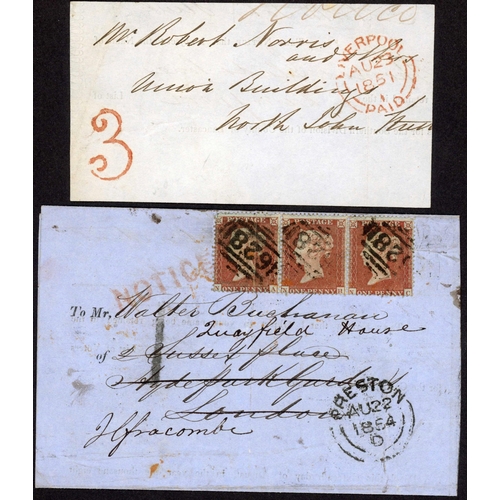 Mr. Robert Norris
and others
Union Buildings
North John Street
LIVERPOOL
AU 23
1851
PAID
3
628
ONE PENNY
ONE PENNY
ONE PENNY
NOTICE
To Mr. Walter Buchanan
Quayfield House
of 2 Sussex place
Hyde park Gardens
London
Ilfracombe
1
PRESTON
AU 22
1854
D